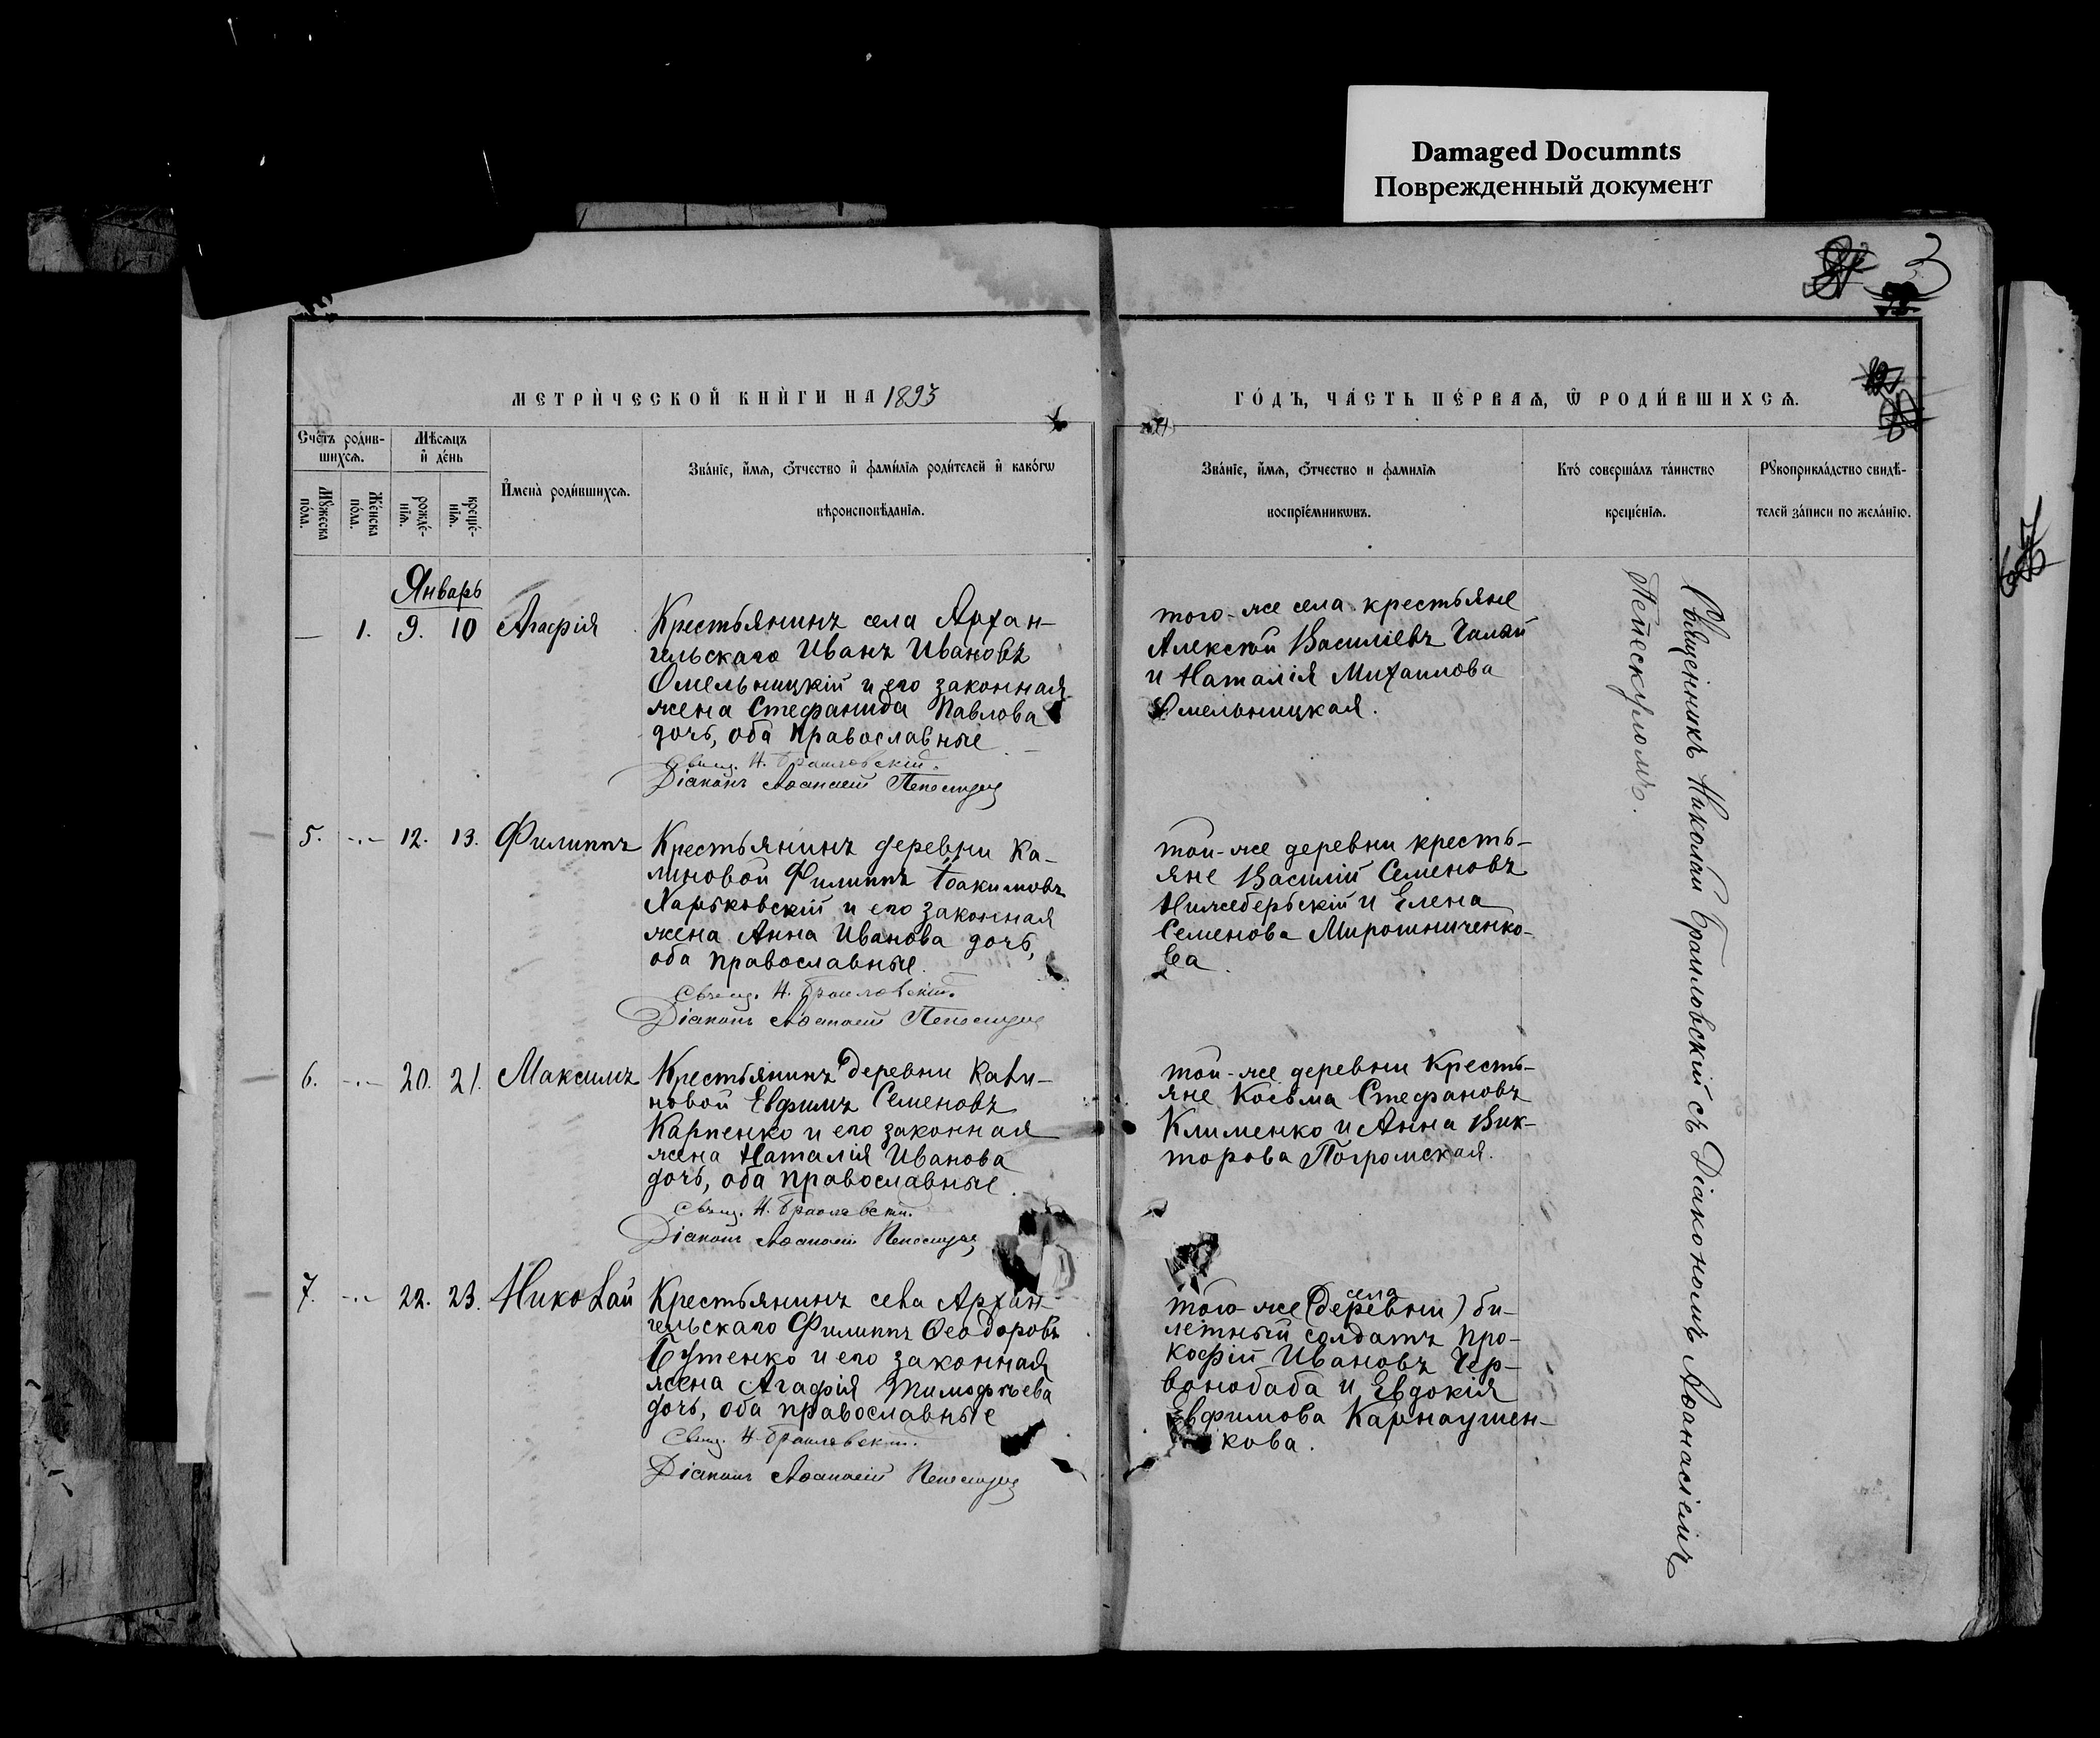 Damaged Documnts
Поврежденный документ
3
МЕТРИ́ЧЕСКОЙ КНИ́ГИ НА 1893
ГО́ДЪ, ЧА́СТЬ ПЕ́РВАѦ, Ѡ҆ РОДИ́ВШИХСѦ.
Сче́тъ роди́в-
шихсѧ.
Мѣ́сѧцъ
и҆ де́нь
Мꙋ́жеска
по́ла.
Же́нска
по́ла.
рожде́-
нїѧ.
креще́-
нїѧ.
И҆мена̀ роди́вшихсѧ.
Зва́нїе, и҆́мѧ, ѻ҆́тчество и҆ фами́лїѧ роди́телей и҆ како́гѡ
вѣроисповѣ́данїѧ.
Зва́нїе, и҆́мѧ, ѻ҆́тчество и фамилїѧ
воспрїе́мникѡвъ.
Кто́ соверша́лъ та́инство
креще́нїѧ.
Рꙋкоприкла́дство свидѣ́-
телей за́писи по жела́нїю.
Январь
— 1. 9. 10 Агафія
Крестьянинъ села Архан-
гельскаго Иванъ Ивановъ
Омельницкій и его законная
жена Стефанида Павлова
дочь, оба православные
Свящ. Н. Браиловскій.
Діаконъ Аѳанасій
того-же села крестьяне
Алексѣй Василіевъ Галай
и Наталія Михаилова
Омельницкая.
5. -.- 12. 13. Филиппъ
Крестьянинъ деревни Ка-
линовой Филиппъ Іоакимовъ
Харьковскій и его законная
жена Анна Иванова дочь,
оба православные.
Свящ. Н. Браиловскій.
Діаконъ Аѳанасій
той-же деревни кресть-
яне Василій Семеновъ
Нижеберьскій и Елена
Семенова Мирошниченко-
ва.
6. -.- 20. 21. Максимъ
Крестьянинъ деревни Кали-
новой Евфимъ Семеновъ
Карпенко и его законная
жена Наталія Иванова
дочь, оба православные
Свящ. Н. Браиловскій.
Діаконъ Аѳанасій
той-же деревни Кресть-
яне Косьма Стефановъ
Клименко и Анна Вик-
торова Погромская.
7. -.- 22. 23. Николай
Крестьянинъ села Архан-
гельскаго Филиппъ Ѳеодоровъ
Бутенко и его законная
жена Агафія Тимофѣева
дочь, оба православные
Свящ. Н. Браиловскій.
Діаконъ Аѳанасій
села
того-же (деревни) би-
летный солдатъ Про-
кофій Ивановъ Чер-
вонобаба и Евдокія
Евфимова Карнаушен-
кова.
Священникъ Николай Браиловскій съ Діакономъ Аѳанасіемъ